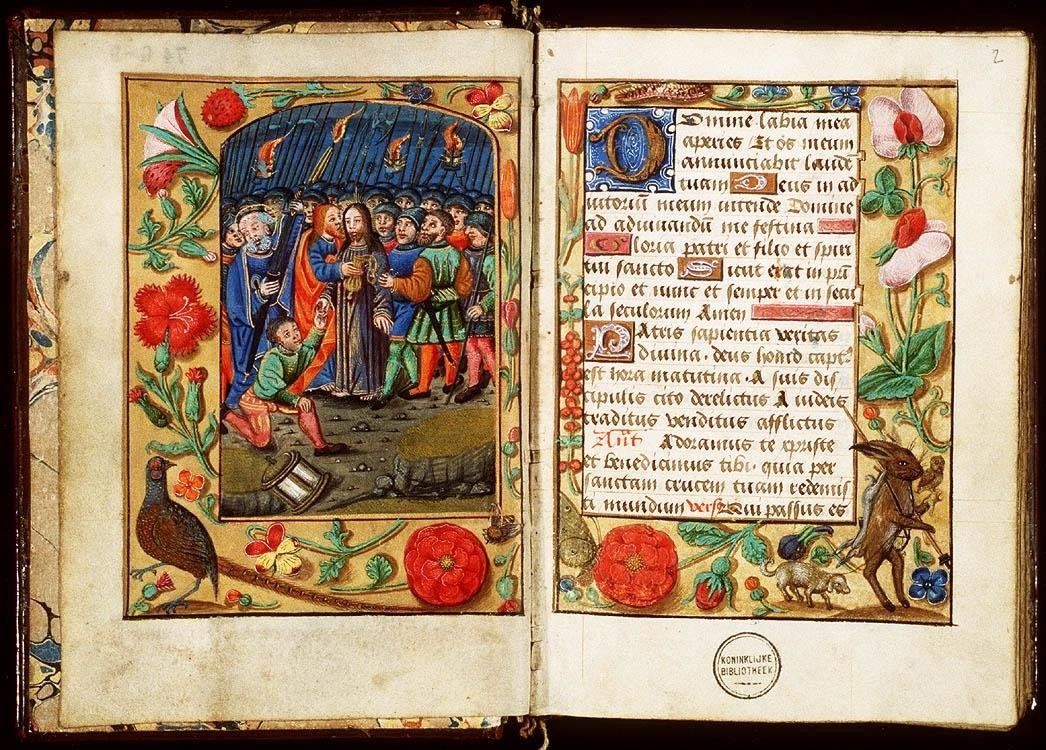 74 G 9
2
Domine labia mea
aperies Et os meum
annunciabit laude
tuam Deus in ad
iutoriū meum intende Domine
ad adiuuandū me festina
Gloria patri et filio et spiri
tui sancto Sicut erat in pn
cipio et nunc et semper et in secu
la seculorum Amen
Patris sapientia veritas
diuina · deus homo capt9
est hora matutina · A suis dis
cipulis cito derelictus A iudeis
traditus venditus afflictus
Adoramus te xpriste
et benedicimus tibi · quia per
sanctam crucem tuam redemis
mundum vers9 Qui passus es
KONINKLIJKE
BIBLIOTHEEK